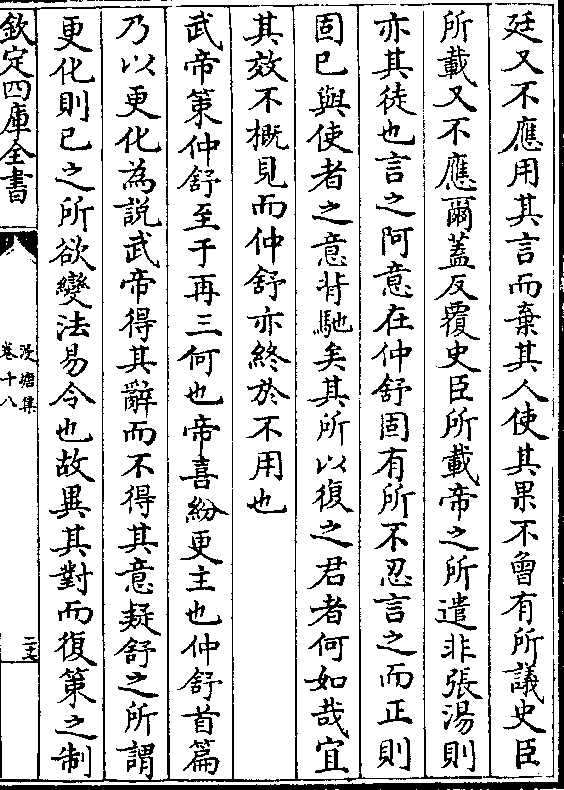 廷又不應用其言而棄其人使其果不曾有所議史臣
所載又不應爾蓋反覆史臣所載帝之所遣非張湯則
亦其徒也言之阿意在仲舒固有所不忍言之而正則
固已與使者之意背馳矣其所以復之君者何如哉宜
其效不概見而仲舒亦終於不用也
武帝策仲舒至于再三何也帝喜紛更主也仲舒首篇
乃以更化為說武帝得其辭而不得其意疑舒之所謂
更化則已之所欲變法易令也故異其對而復策之制
欽定四庫全書
漫塘集
卷十八